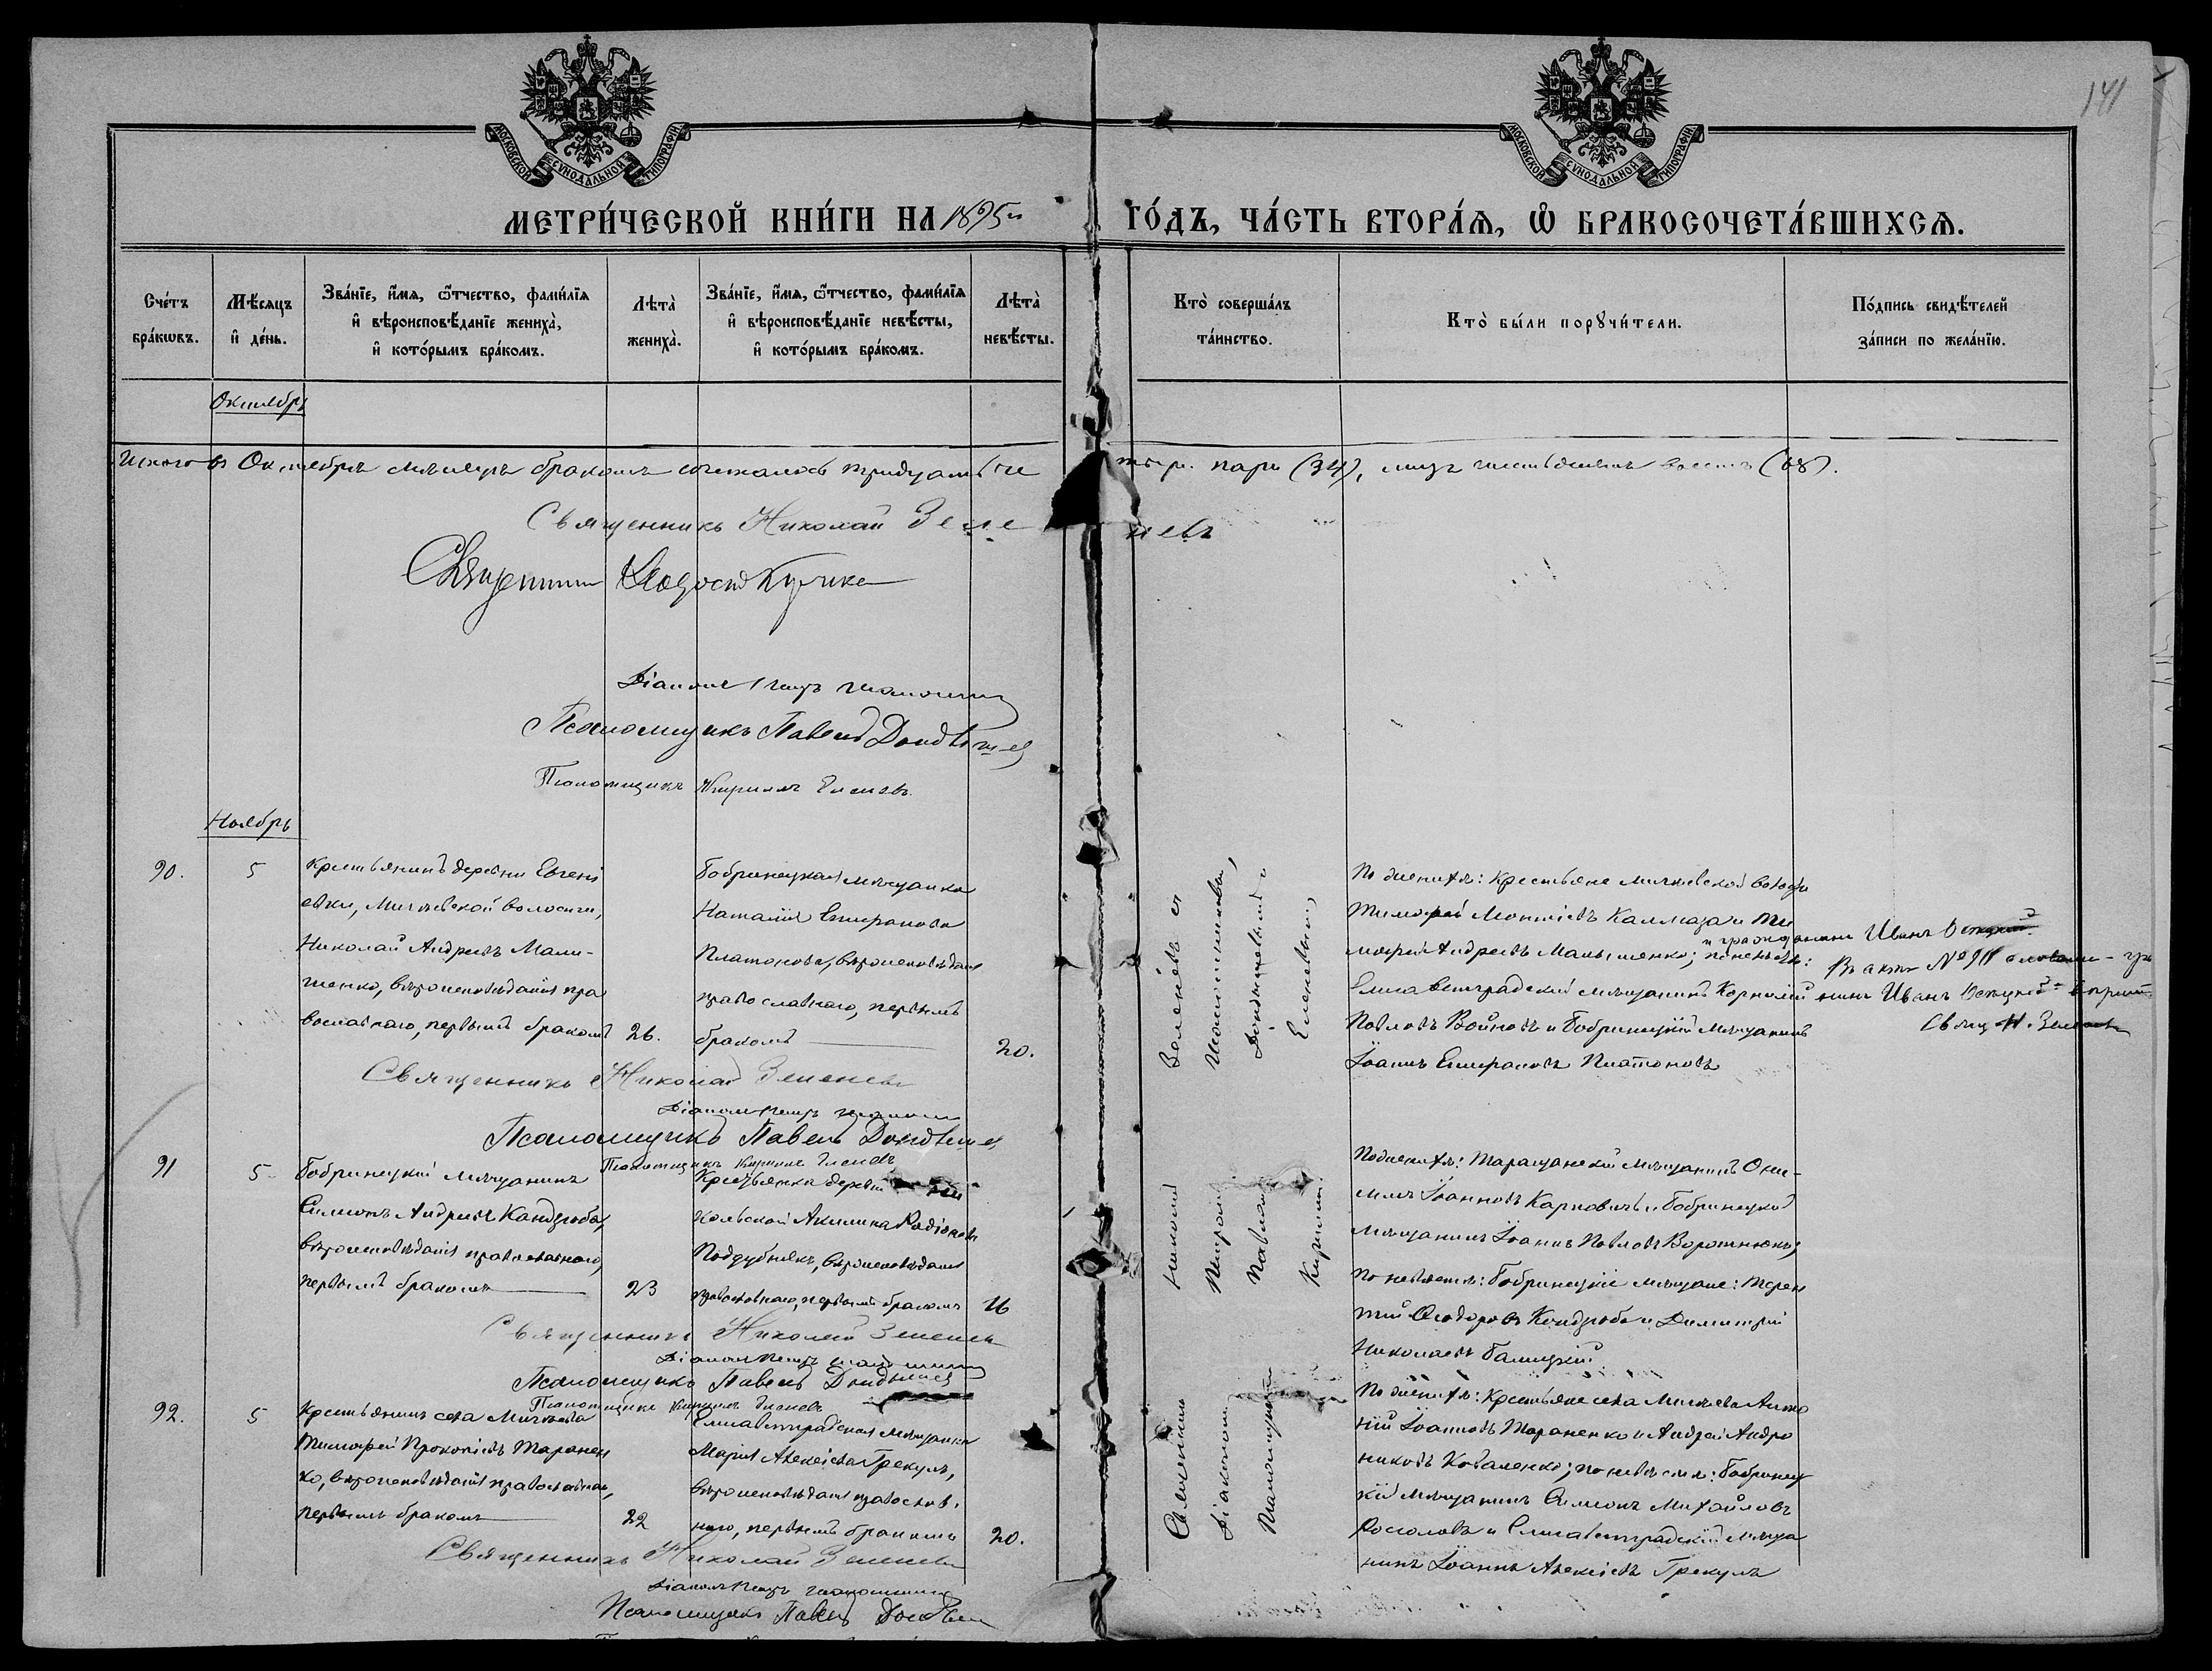 141
МОСКОВСКОЙ СѴНОДАЛЬНОЙ ТИПОГРАФІИ
МОСКОВСКОЙ СѴНОДАЛЬНОЙ ТИПОГРАФІИ
МЕТРИ́ЧЕСКОЙ КНИ́ГИ НА 1895й ГО́ДЪ, ЧА́СТЬ ВТОРА́Ѧ, Ѿ БРАКОСОЧЕТА́ВШИХСѦ.
Сче́тъ
бра́кѡвъ.
Мѣ́сяцъ
и҆ де́нь.
Зва́нїе, и҆́мѧ, ѻ҆́тчество, фами́лїѧ
и҆ вѣроисповѣ́данїе жениха̀,
и҆ кото́рымъ бра́комъ.
Лѣта̀
жениха̀.
Зва́нїе, и҆́мѧ, ѻ҆́тчество, фами́лїѧ
и҆ вѣроисповѣ́данїе невѣ́сты,
и҆ кото́рымъ бра́комъ.
Лѣта̀
невѣ́сты.
Кто̀ соверша́лъ
та́инство.
Кто̀ бы́ли порꙋчи́тели.
По́дпись свидѣ́телей
за́писи по жела́нїю.
Октябрь
Итого въ Октябрѣ мѣсяцѣ бракомъ сочеталось тридцать че тыре пары (34), лицъ шестьдесятъ восемь (68).
Священникъ Николай Зеле невъ
Священникъ
Діаконъ Петръ
Псаломщикъ Павелъ
Псаломщикъ Кириллъ Еленевъ
Ноябрь
90.
5
Крестьянинъ деревни Евгені
евки, Мигѣевской волости,
Николай Андреевъ Малы-
шенко, вѣроисповѣданія пра
вославнаго, первымъ бракомъ
26.
Бобринецкая мѣщанка
Наталія Епифанова
Платонова, вѣроисповѣданія
православнаго, первымъ
бракомъ
20.
Зеленевъ съ
Еленевымъ
По женихѣ: Крестьяне Мигѣевской волости
Тимофей Калмазан и Ти
мофей Андреевъ Малышенко; по невѣстѣ:
Елисаветградскій мѣщанинъ Корнилій
Павловъ Войновъ и Бобринецкій мѣщанинъ
Іоаннъ Епифановъ Платоновъ
и гражданинъ Иванъ
Въ актѣ № 91
нинъ Иванъ
Свящ. Н. Зеленевъ
Священникъ Николай Зеленевъ
Діаконъ Петръ
Псаломщикъ Павелъ
Псаломщикъ Кириллъ Еленевъ
91
5
Бобринецкій мѣщанинъ
Симеонъ Андреевъ Кандзюба,
вѣроисповѣданія православнаго,
первымъ бракомъ
23
Крестьянка деревни
Акилина Родіонова
Поддубнякъ, вѣроисповѣданія
православнаго, первымъ бракомъ
16
Николай
Петромъ
Павломъ
Кирилл.
По женихѣ: Таращанскій мѣщанинъ Они-
симъ Іоанновъ Карповичъ и Бобринецкій
мѣщанинъ Іоаннъ Павловъ Воротнюкъ;
по невѣстѣ: Бобринецкіе мѣщане: Терен
тій Ѳеодоровъ Кондзюба и Димитрій
Николаевъ Галицкій.
Священникъ Николай Зеленевъ
Діаконъ Петръ
Псаломщикъ Павелъ
Псаломщикъ Кириллъ Еленевъ
92.
5
Крестьянинъ села Мигѣева
Тимофей Прокопіевъ Таранен
ко, вѣроисповѣданія православнаго,
первымъ бракомъ
22
Елисаветградская мѣщанка
Марія Алексіева Грекулъ,
вѣроисповѣданія православ-
наго, первымъ бракомъ
20.
Священникъ
Діакономъ
Псаломщиком
По женихѣ: Крестьяне села Мигѣева Анто
ній Іоанновъ Тараненко и Андрей Андро
никовъ Коваленко; по невѣстѣ: Бобринец
кій мѣщанинъ Симеонъ Михайловъ
Росоловъ и Елисаветградскій мѣща
нинъ Іоаннъ Алексіевъ Грекулъ
Священникъ Николай Зеленевъ
Діаконъ Петръ
Псаломщикъ Павелъ